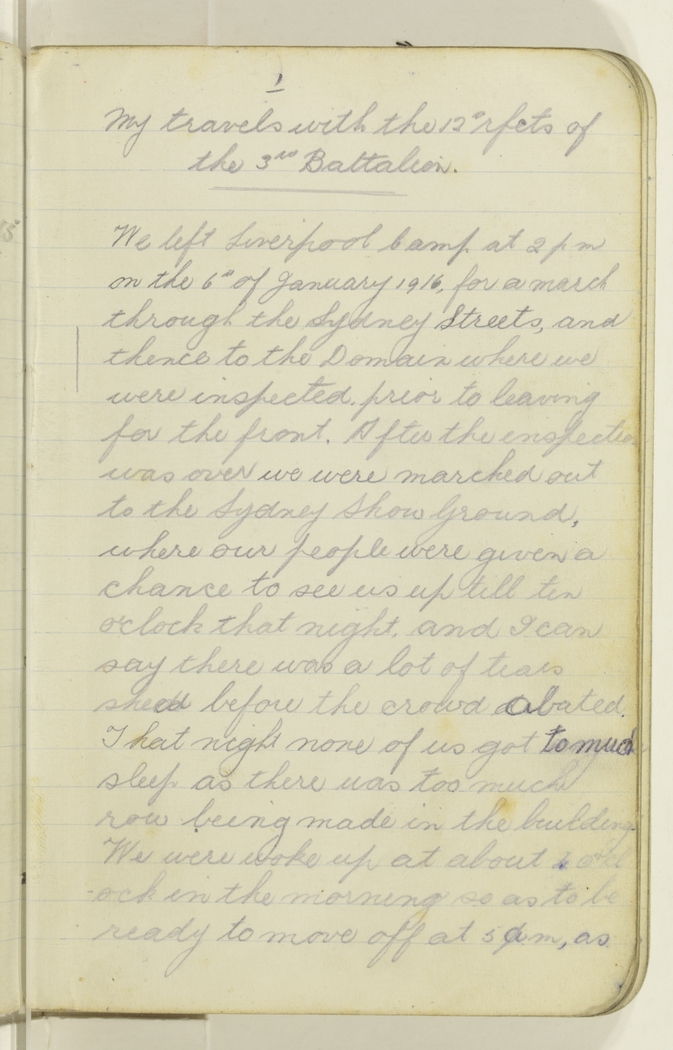 1
My travels with the 12th rfcts of
the 3rd Battalion.
We left Liverpool Camp at 2 pm
on the 6th of January 1916, for a march
through the Sydney Streets, and
thence to the Domain where we
were inspected, prior to leaving
for the front. After the inspection
was over we were marched out
to the Sydney Show Ground,
where our people were given a
chance to see us up till ten
o'clock that night, and I can
say there was a lot of tears
shed before the crowd abated.
That night none of us got to much
sleep as there was too much
row being made in the building
We were woke up at about o'cl
-ock in the morning so as to be
ready to move off at 5 am, as